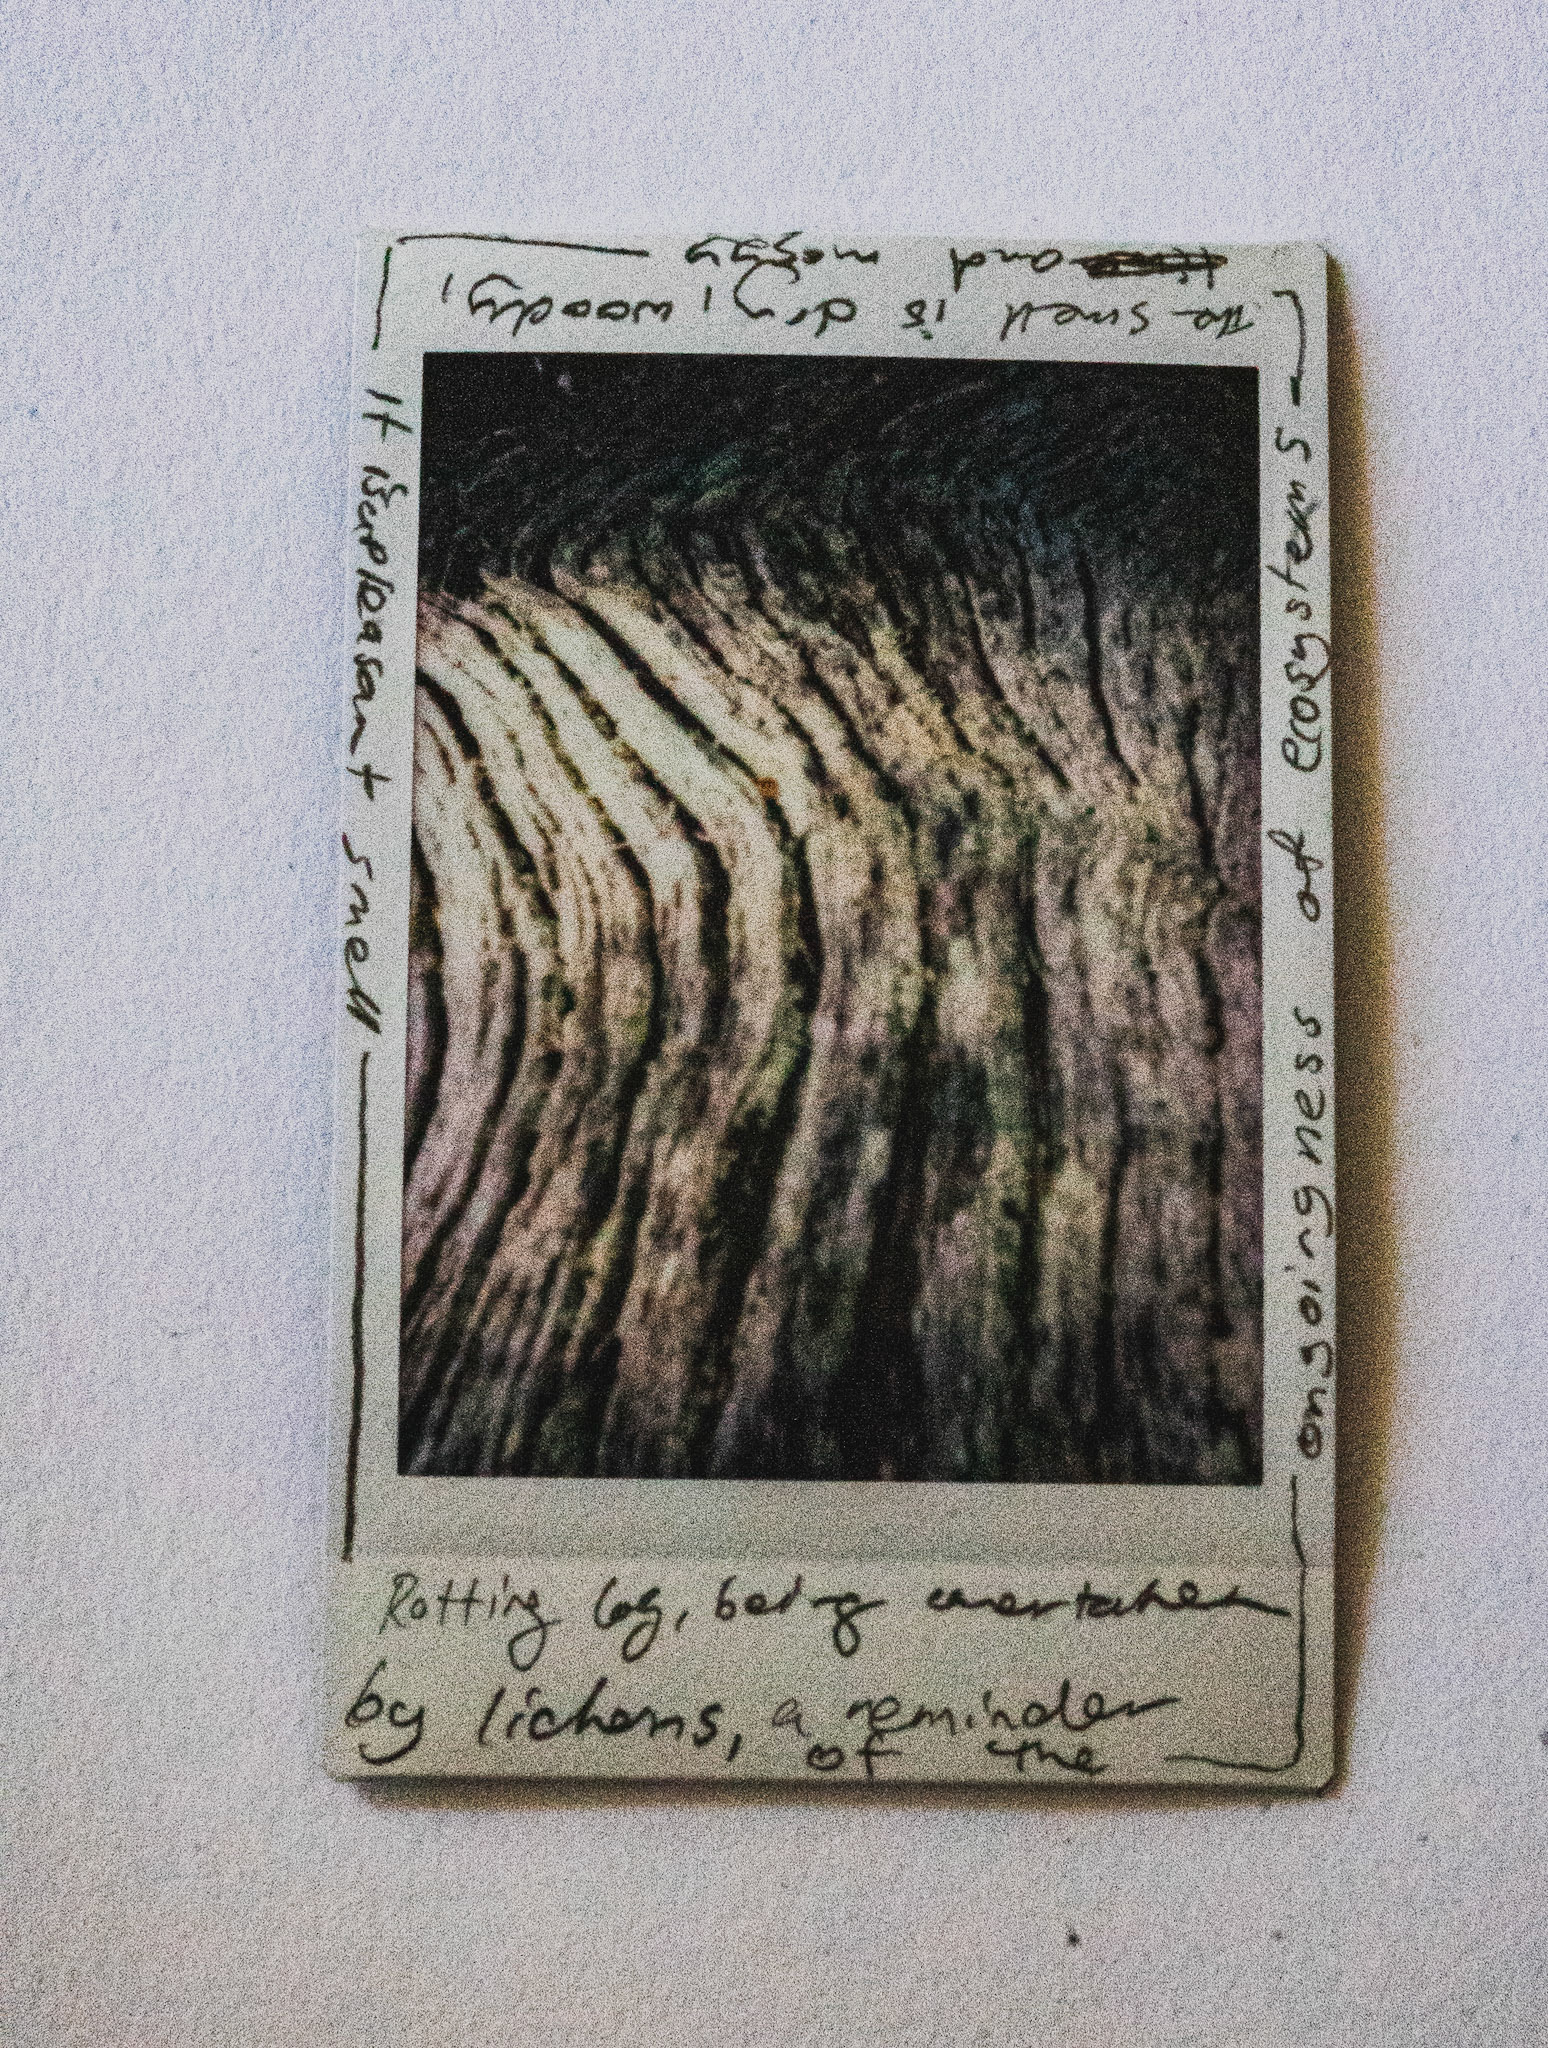 Rotting log, being overtaken
by lichens, a reminder
of the
ongoingness of ecosystems
The smell is dry, woody,
and mossy
It is a pleasant smell